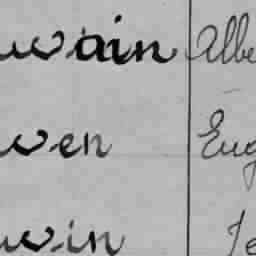 wain Albe
wen Eug
win Je